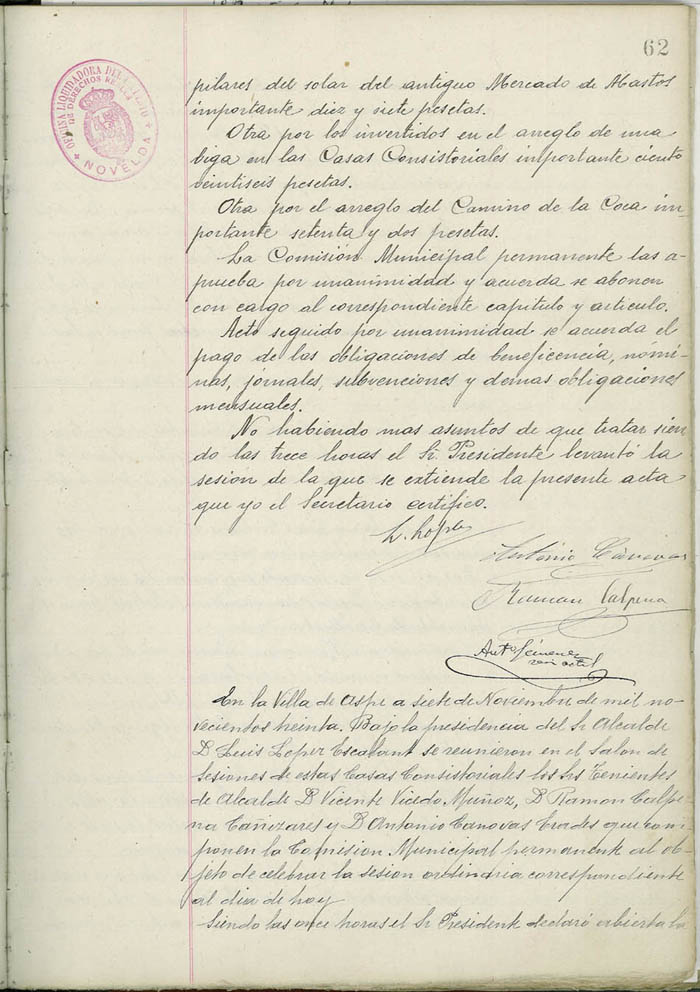 62
OFICINA LIQUIDADORA DEL
DE DERECHOS REALES
NOVELDA
pilares del solar del antiguo Mercado de Abastos
importante diez y siete pesetas.
Otra por los invertidos en el arreglo de una
biga en las Casas Consistoriales importante ciento
veintiseis pesetas.
Otra por el arreglo del Camino de la Coca im-
portante setenta y dos pesetas.
La Comisión Municipal permanente las a-
prueba por unanimidad y acuerda se abonen
con cargo al correspondiente capitulo y articulo.
Acto seguido por unanimidad se acuerda el
pago de las obligaciones de beneficencia, nómi-
nas, jornales, subvenciones y demas obligaciones
mensuales.
No habiendo mas asuntos de que tratar sien-
do las trece horas el Sr. Presidente levantó la
sesión de la que se extiende la presente acta
que yo el Secretario certifico.
L. Lopez
Antonio Cánovas
Ramon Calpena
Antº Gimenez
En la Villa de Aspe a siete de Noviembre de mil no-
vecientos treinta. Bajo la presidencia del Sr Alcalde
D Luis Lopez Escalant se reunieron en el Salon de
sesiones de estas Casas Consistoriales los Srs Tenientes
de Alcalde D Vicente Vicedo Muñoz, D Ramon Calpe-
na Cañizares y D Antonio Canovas Erades que com-
ponen la Comision Municipal permanente al ob-
jeto de celebrar la sesion ordinaria correspondiente
al dia de hoy
Siendo las once horas el Sr Presidente declaró abierta la